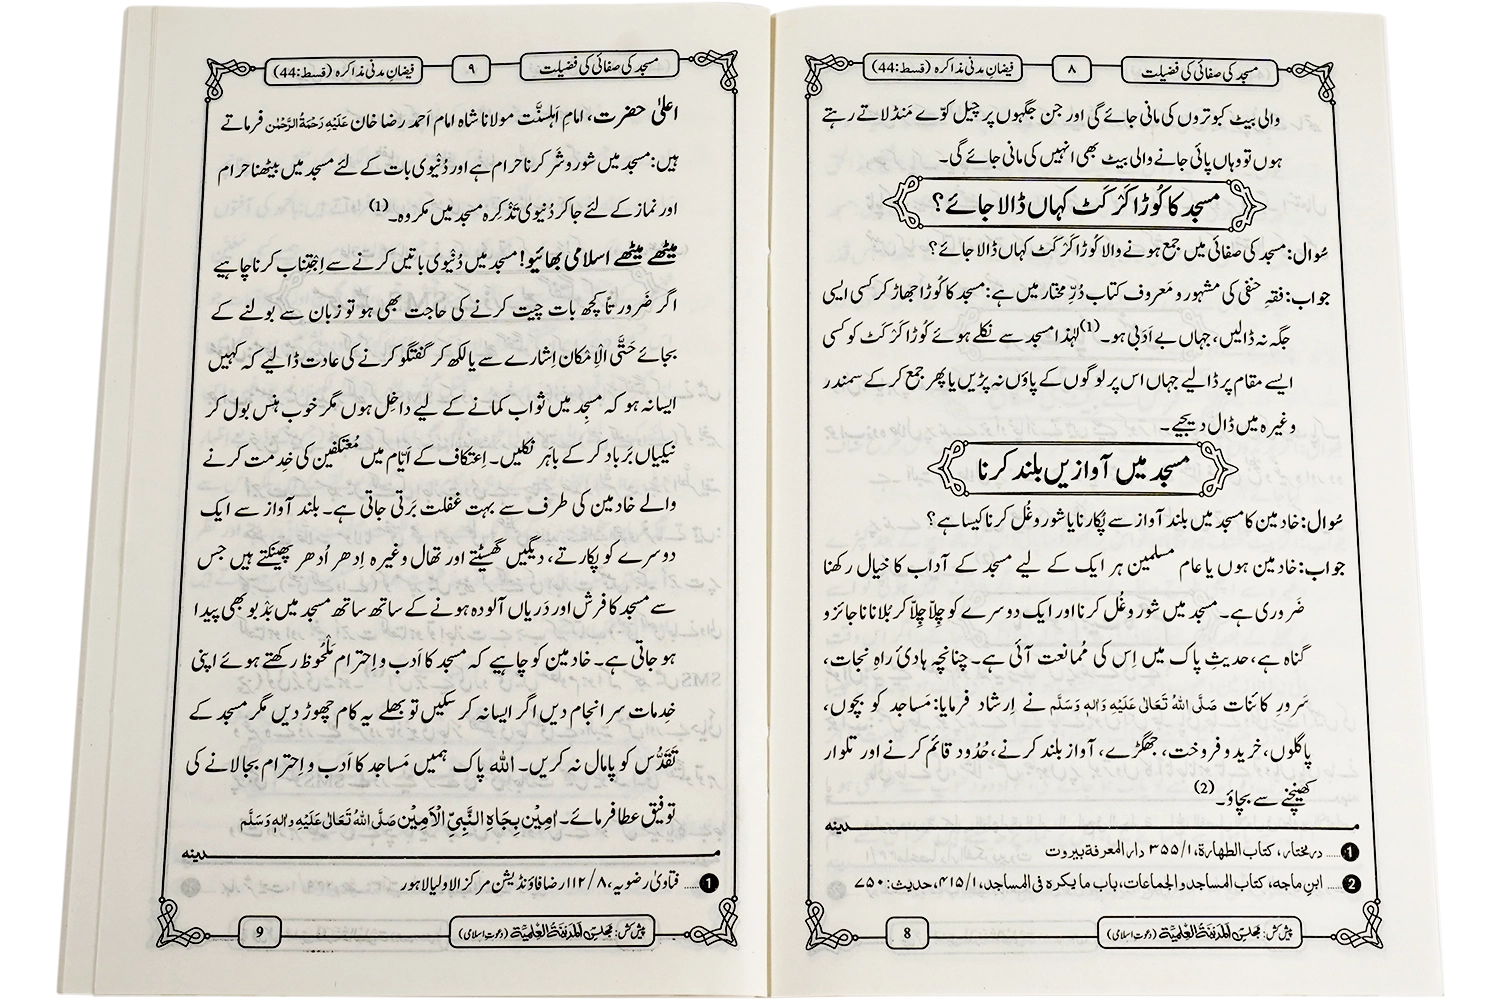 مسجد کی صفائی کی فضیلت
۸
فیضانِ مدنی مذاکرہ (قسط:44)
والی بیٹ کبوتروں کی مانی جائے گی اور جن جگہوں پر چیل کوّے مَنڈلاتے رہتے
ہوں تو وہاں پائی جانے والی بیٹ بھی انہیں کی مانی جائے گی۔
مسجد کا کُوڑا کَرکَٹ کہاں ڈالا جائے؟
سُوال: مسجد کی صفائی میں جمع ہونے والا کُوڑا کَرکَٹ کہاں ڈالا جائے؟
جواب: فقہِ حنفی کی مشہور و مَعروف کتاب دُرِّ مختار میں ہے: مسجد کا کُوڑا جھاڑ کر کسی ایسی
جگہ نہ ڈالیں، جہاں بے اَدَبی ہو۔(1) لہٰذا مسجد سے نکلے ہوئے کُوڑا کَرکَٹ کو کسی
ایسے مقام پر ڈالیے جہاں اس پر لوگوں کے پاؤں نہ پڑیں یا پھر جمع کر کے سمندر
وغیرہ میں ڈال دیجیے۔
مسجد میں آوازیں بلند کرنا
سُوال: خادمین کا مسجد میں بلند آواز سے پُکارنا یا شور و غُل کرنا کیسا ہے؟
جواب: خادمین ہوں یا عام مسلمین ہر ایک کے لیے مسجد کے آداب کا خیال رکھنا
ضَروری ہے۔ مسجد میں شور و غُل کرنا اور ایک دوسرے کو چِلّا چِلّا کر بُلانا ناجائز و
گناہ ہے، حدیثِ پاک میں اِس کی مُمانعت آئی ہے۔ چنانچہ ہادیٔ راہِ نجات،
سَرورِ کائنات صَلَّی اللہُ تَعَالٰی عَلَیْہِ وَاٰلِہٖ وَسَلَّم نے اِرشاد فرمایا: مَساجد کو بچوں،
پاگلوں، خرید و فروخت، جھگڑے، آواز بلند کرنے، حُدُود قائم کرنے اور تلوار
کھینچنے سے بچاؤ۔(2)
مدینہ
1 ..... درمختار، کتاب الطھارۃ، ۱/۳۵۵ دار المعرفۃ بیروت
2 ..... ابنِ ماجہ، کتاب المساجد والجماعات، باب ما یکرہ فی المساجد، ۱/۴۱۵، حدیث: ۷۵۰
پیش کش: مجلس المدینۃ العلمیۃ (دعوتِ اسلامی)
8
مسجد کی صفائی کی فضیلت
۹
فیضانِ مدنی مذاکرہ (قسط:44)
اعلیٰ حضرت، امامِ اَہلِسنَّت مولانا شاہ امام اَحمد رضا خان عَلَیْہِ رَحْمَۃُ الرَّحْمٰن فرماتے
ہیں: مسجد میں شور و شَر کرنا حرام ہے اور دُنْیوی بات کے لئے مسجد میں بیٹھنا حرام
اور نماز کے لئے جا کر دُنیوی تَذْکِرہ مسجد میں مکروہ۔(1)
میٹھے میٹھے اسلامی بھائیو! مسجد میں دُنْیوی باتیں کرنے سے اِجْتِناب کرنا چاہیے
اگر ضَرورتاً کچھ بات چیت کرنے کی حاجت بھی ہو تو زبان سے بولنے کے
بجائے حَتَّی الْاِمْکان اِشارے سے یا لکھ کر گفتگو کرنے کی عادت ڈالیے کہ کہیں
ایسا نہ ہو کہ مسجد میں ثواب کمانے کے لیے داخِل ہوں مگر خوب ہنس بول کر
نیکیاں بَرباد کر کے باہَر نکلیں۔ اِعتکاف کے اَیّام میں مُعْتکفین کی خِدمت کرنے
والے خادمین کی طرف سے بہت غفلت بَرتی جاتی ہے۔ بلند آواز سے ایک
دوسرے کو پکارتے، دیگیں گھسیٹتے اور تھال وغیرہ اِدھر اُدھر پھینکتے ہیں جس
سے مسجد کا فرش اور دَریاں آلودہ ہونے کے ساتھ ساتھ مسجد میں بَدْبو بھی پیدا
ہو جاتی ہے۔ خادمین کو چاہیے کہ مسجد کا اَدب و اِحترام مَلْحُوظ رکھتے ہوئے اپنی
خِدمات سر انجام دیں اگر ایسا نہ کر سکیں تو بھلے یہ کام چھوڑ دیں مگر مسجد کے
تَقَدُّس کو پامال نہ کریں۔ اللہ پاک ہمیں مَساجد کا اَدب و اِحترام بجا لانے کی
توفیق عطا فرمائے۔ اٰمِیْن بِجَاہِ النَّبِیِّ الْاَمِیْن صَلَّی اللہُ تَعَالٰی عَلَیْہِ وَاٰلِہٖ وَسَلَّم
مدینہ
1 ..... فتاویٰ رضویہ، ۸/۱۱۲ رضا فاؤنڈیشن مرکز الاولیا لاہور
پیش کش: مجلس المدینۃ العلمیۃ (دعوتِ اسلامی)
9